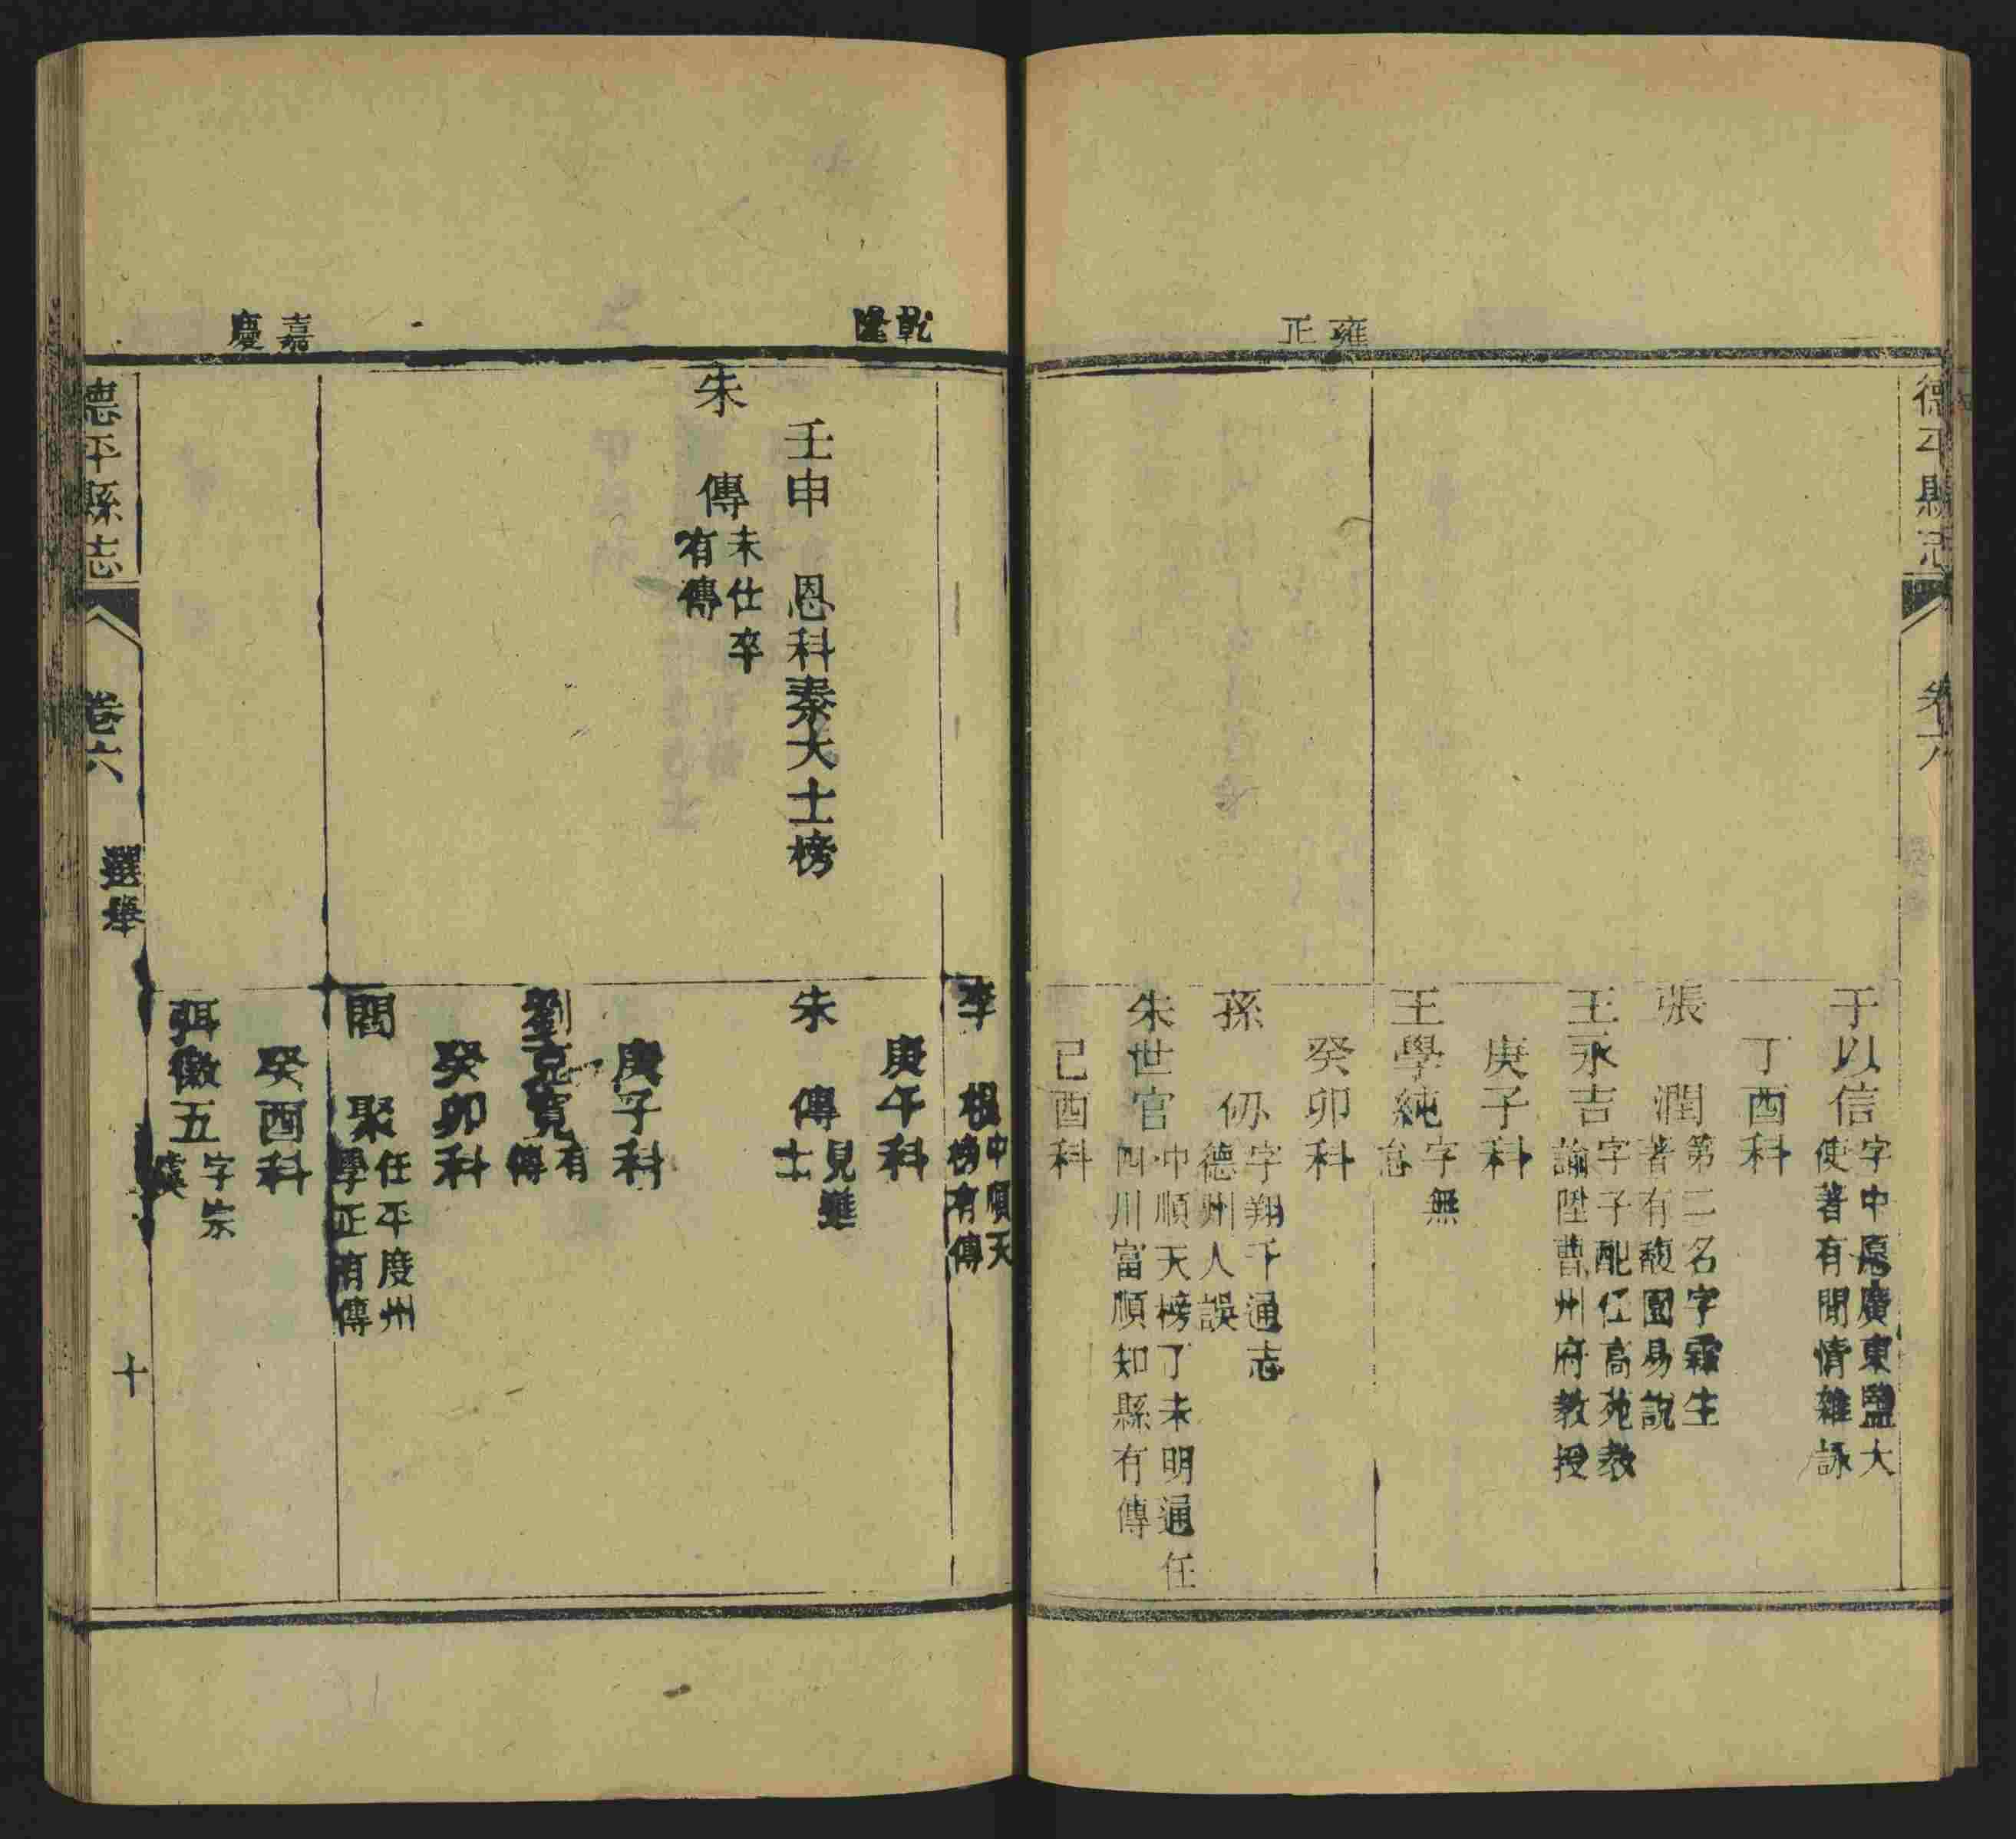 德平縣志
卷六
雍正
于以信 字中孚廣東鹽大
使著有閒情雜詠
丁酉科
張潤 第二名字霖生
著有馥園易說
王永吉 字子配任高苑教
諭陞曹州府教授
庚子科
王學純 字無
怠
癸卯科
孫仞 字翔千通志
德州人誤
朱世官 中順天榜丁未明通任
四川富順知縣有傳
己酉科
乾隆
李根 中順天
榜有傳
壬申恩科秦大士榜
朱傳 未仕卒
有傳
庚午科
朱傳 見進
士
庚子科
劉克寬 有
傳
癸卯科
閻聚 任平度州
學正有傳
嘉慶
癸酉科
弭徽五 字宗
虞
德平縣志
卷六
選舉
十